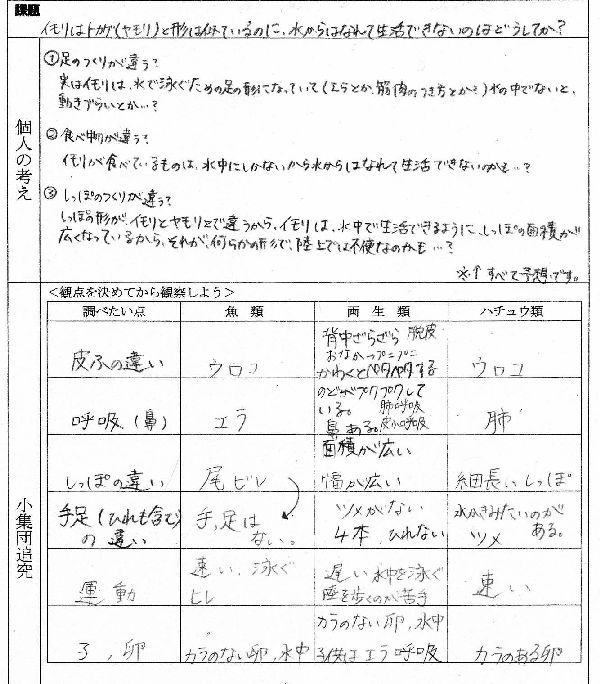 課題
イモリはトカゲ(ヤモリ)と形は似ているのに、水からはなれて生活できないのはどうしてか?
個人の考え
①足のつくりが違う?
実はイモリは、水で泳ぐための足の形になっていて(エラとか、筋肉のつき方とか?)水の中でないと、
動きづらいとか…?
②食べ物が違う?
イモリが食べているものは、水中にしかないから水からはなれて生活できないのかも…?
③しっぽのつくりが違う?
しっぽの形が、イモリとヤモリとで違うから、イモリは、水中で生活できるように、しっぽの面積が
広くなっているから、それが、何らかの形で、陸上では不便なのかも…?
※↑すべて予想です。
小集団追究
<観点を決めてから観察しよう>
調べたい点 魚類 両生類 ハチュウ類
皮ふの違い ウロコ 背中ざらざら 脱皮
おなかプニプニ
かわくとペタペタする
ウロコ
呼吸、(鼻) エラ のどがプクプクして
いる。 肺呼吸
鼻ある。皮ふ呼吸
肺
しっぽの違い 尾ビレ 面積が広い
幅が広い
細長いしっぽ
手足(ひれも含む)
の違い
手、足は
ない。
ツメがない
4本、ひれない
水かきみたいのが
ある。
ツメ
運動 速い、泳ぐ
ヒレ
遅い 水中を泳ぐ
陸を歩くのが苦手
速い
子、卵 カラのない卵、水中 カラのない卵、水中
子供はエラ呼吸
カラのある卵